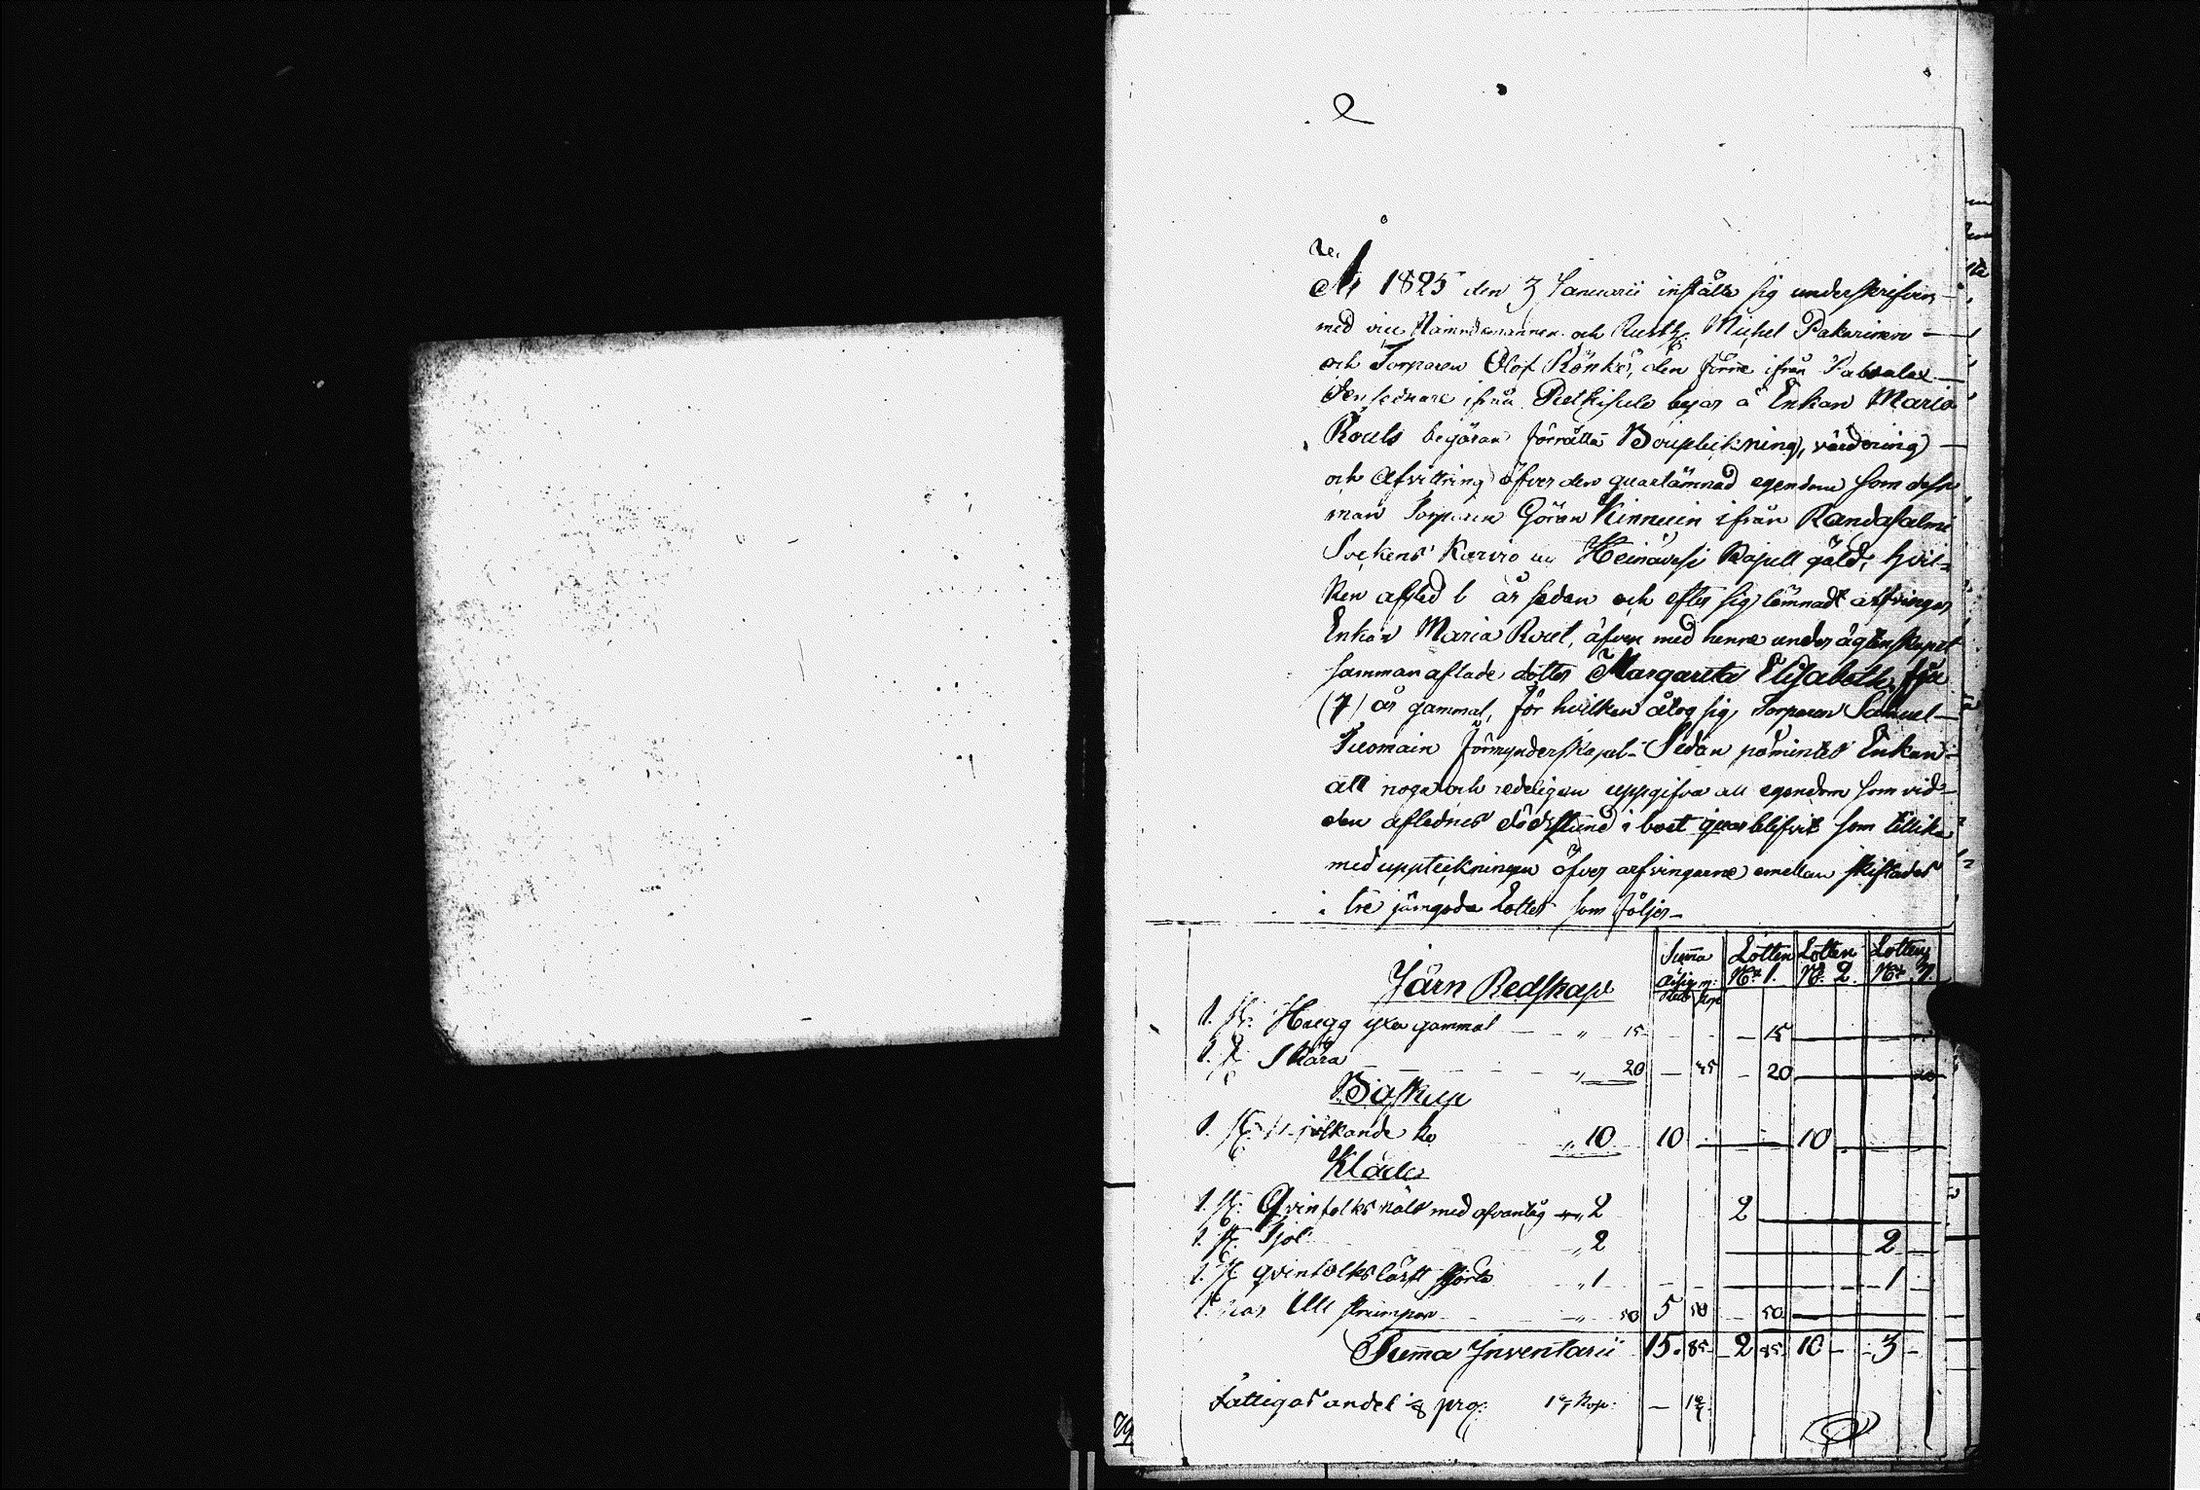 År 1825 den 3 Januarii instälte sig underskrifven
med vice Nämndemannen och Rusth: Michel Pakarinen
och Torparen Olof Rönkö, den förre ifrån
den sednare ifrån byar å Enkan Maria
Rouls begäran förrätta Bouptekning, värdering
och Afvittring öfver den quarlämnad egendom som dess
man Torparen Göran Kinnuin ifrån Randasalmi
Sockens Karvio Heinävesi Kapell gäld, hvil-
ken afled 6 år sedan och efter sig lämnadt arfvingar
Enkan Maria Roul, äfven med henne under ägtenskapet
sammanaflade dotter Margareta Elisabeth, sju
(7) år gammal, för hvilken åtog sig Torparen Samuel
Tuomain förmynderskapet. Sedan påmintes Enkan
att noga och redeligen uppgifva all egendom som vid
den aflednes dödsstund i boet quarblifvit som tillika
med uppteckningen öfver arfvingarne emellan skiftades
i tre jämgoda Lotter som följer
Summa Lotten Lotten Lotten
N: 1. N: 2. N: 3.
Rub Kop
Järn Redskap
1. st: Hugg yxa gammal " 15 15
1. st: Skära " 20 35 20
Boskap
1. st: Mjölkande ko " 10 10 10
Kläder
1. st: Qvinfolks med " 2 2
1. st: Kjol " 2 2
1. st: qvinfolks lärft skjorta " 1 1
1. Par Ull strumpor " 50 5 50 50
Summa Inventarii 15 85 2 85 10 3
Fattigas andel 1/8 prc: Kop:
79